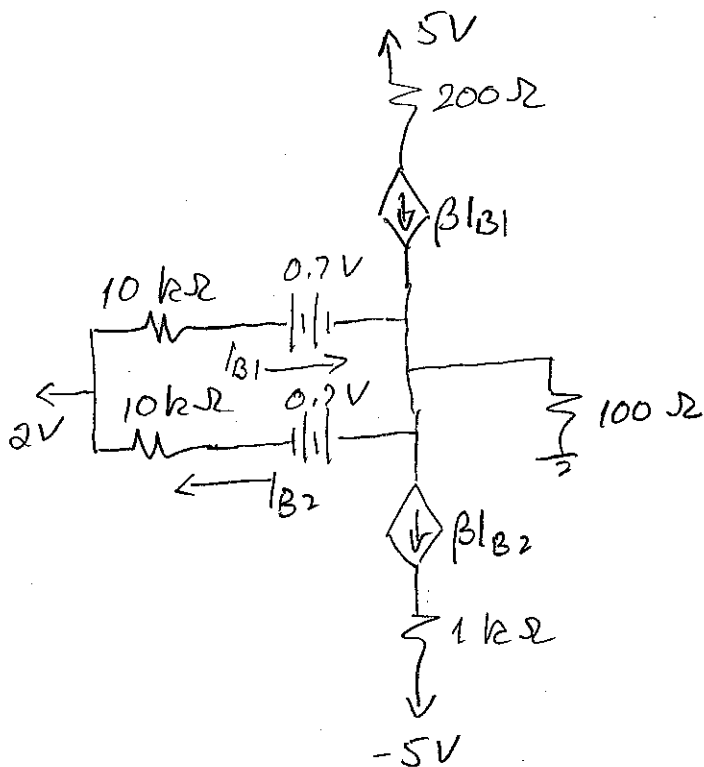 5V
200Ω
βIB1
0.7V
10 kΩ
IB1
2V
10kΩ
0.7V
100 Ω
IB2
βIB2
1 kΩ
-5V